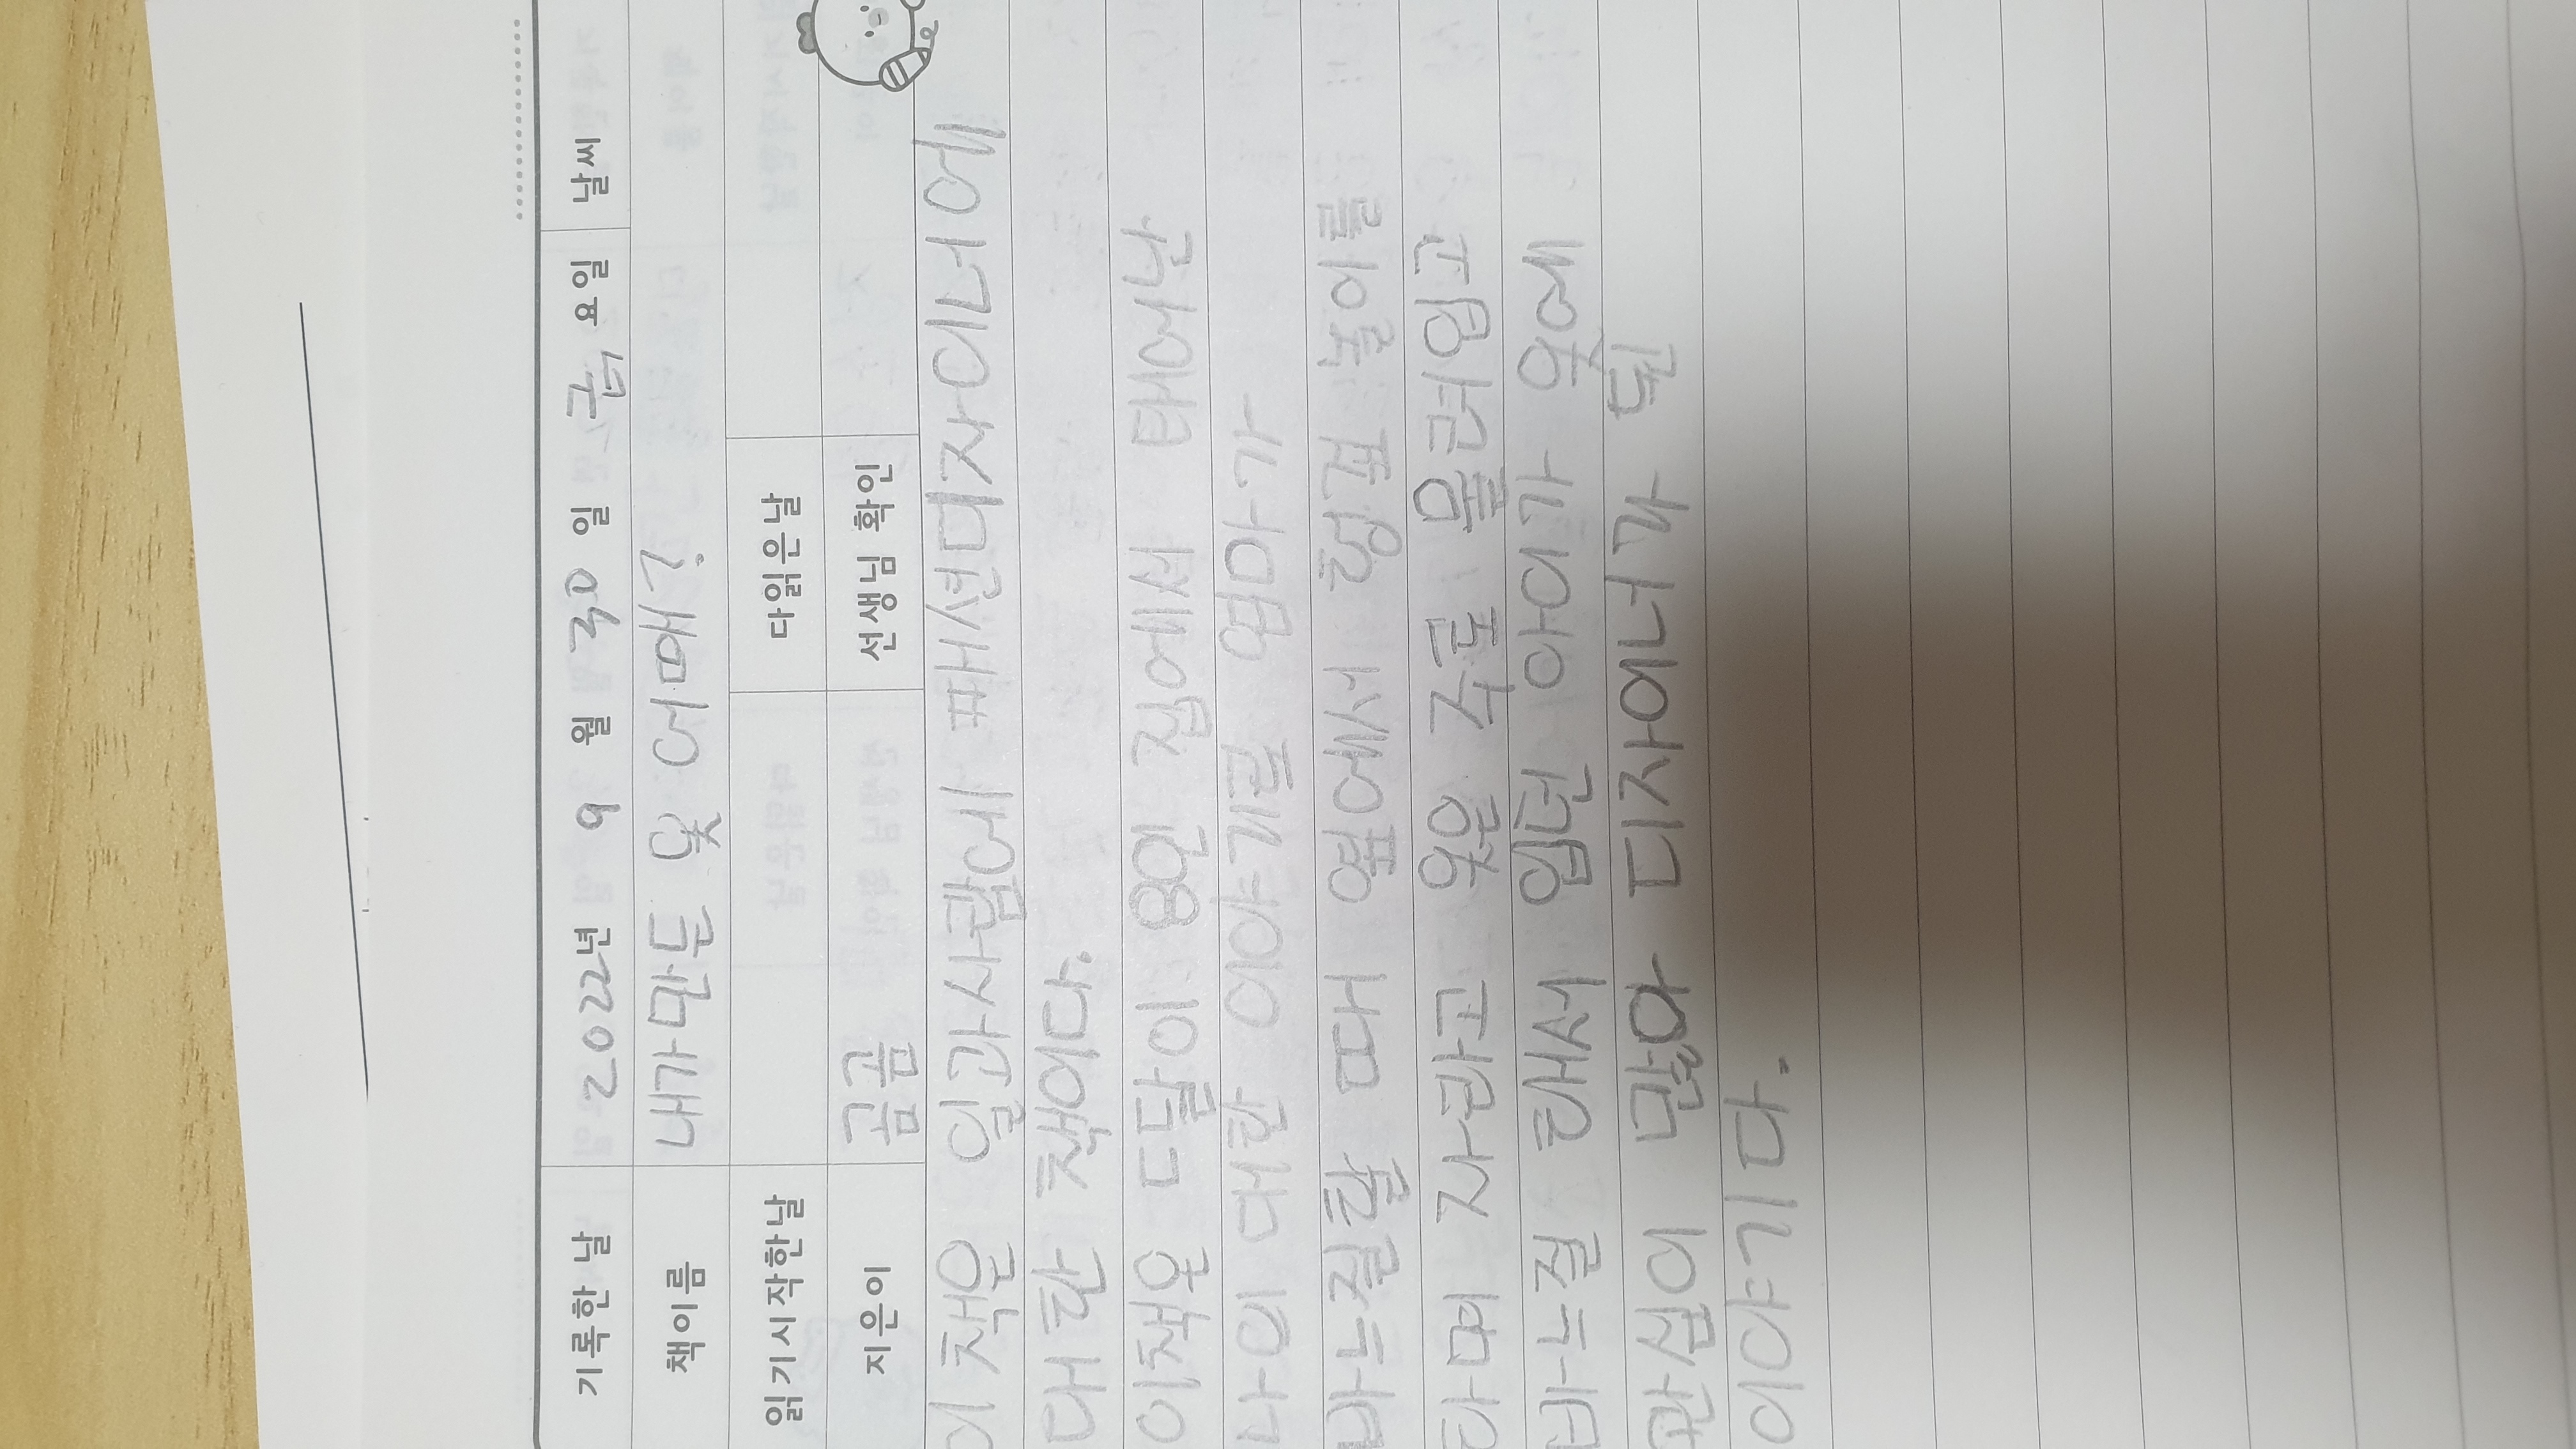 기록한 날 2022년 9 월 30 일 금 요일 날씨
책이름 내가만든 옷 어때?
읽기시작한날 다읽은날
지은이 곰곰 선생님 확인
이 책은 일과사람에 패션디자이너에
대한 책이다.
이책은 다달이 80인 집에서 태어난
나의 대한 이야기로 엄마가
바느질할 때 옆에서 헝겊 놀이를
하며 자라고 옷은 주로 물려입고
바느질 해서 입던 아이가 옷에
관심이 많아 디자이너가 된
이야기다.